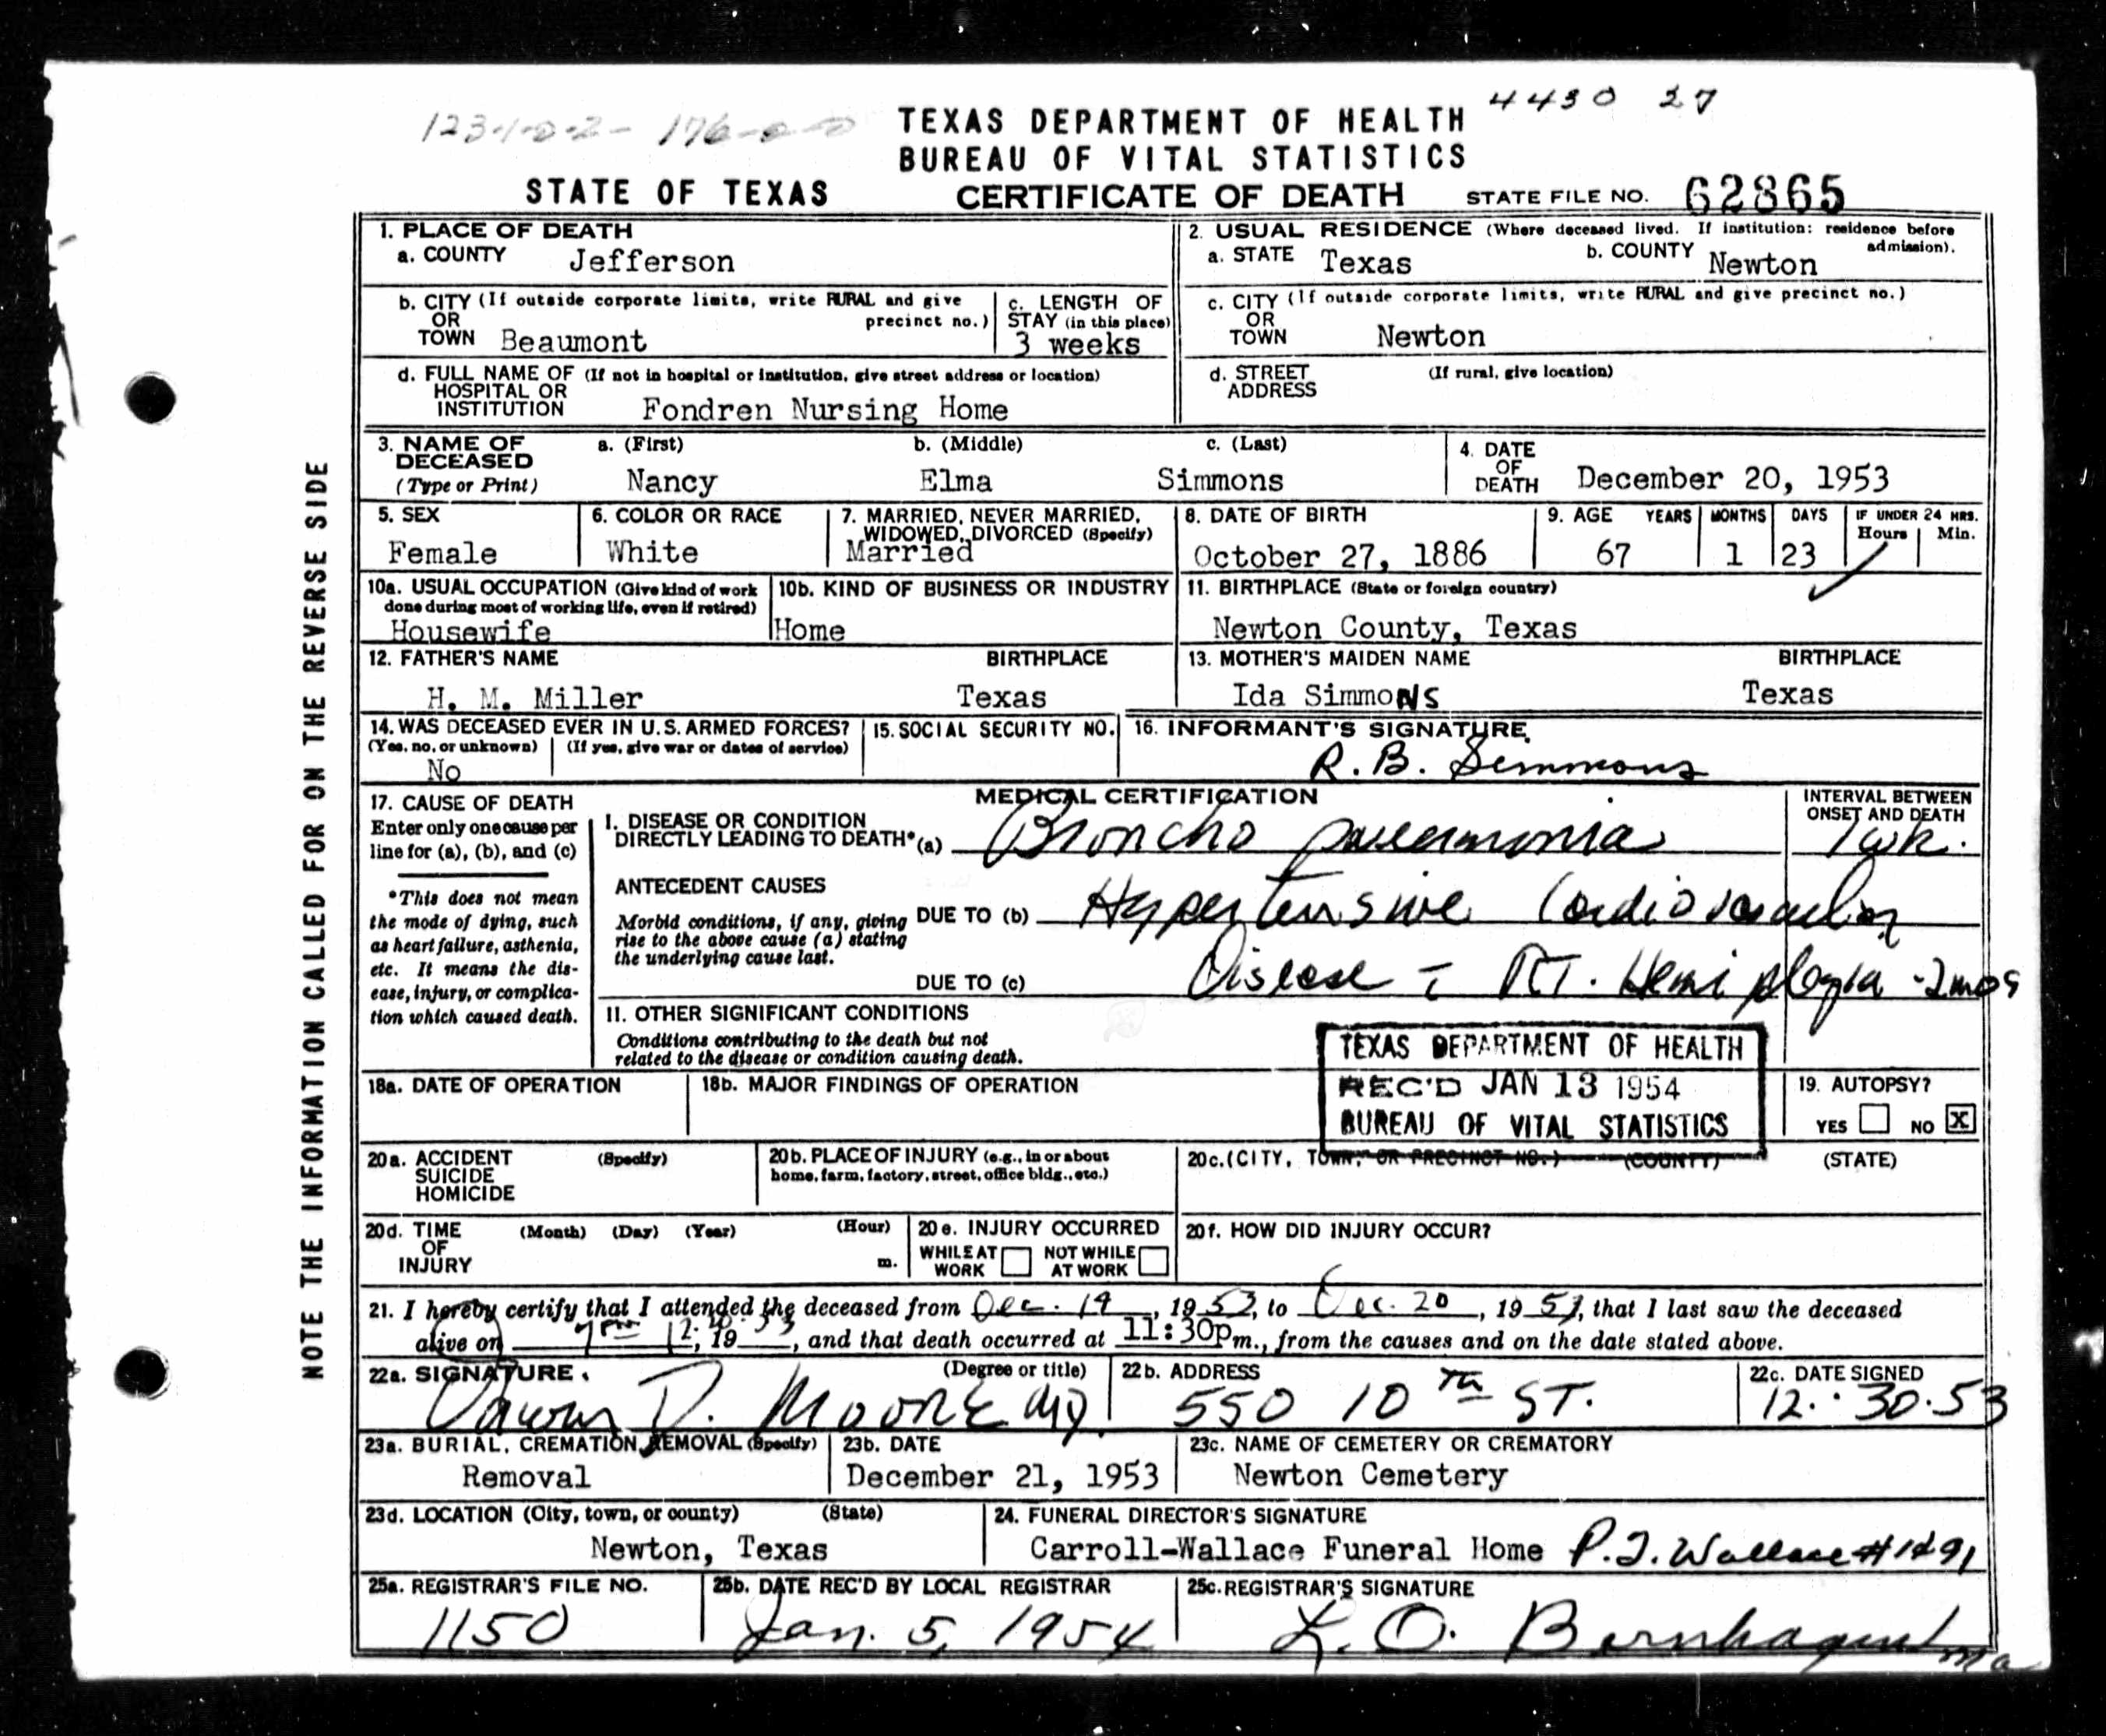 4430 27
123-1-0-2- 176-0-0
TEXAS DEPARTMENT OF HEALTH
BUREAU OF VITAL STATISTICS
STATE OF TEXAS CERTIFICATE OF DEATH STATE FILE NO. 62865
NOTE THE INFORMATION CALLED FOR ON THE REVERSE SIDE
1. PLACE OF DEATH
a. COUNTY Jefferson
2. USUAL RESIDENCE (Where deceased lived. If institution: residence before admission).
a. STATE Texas b. COUNTY Newton
b. CITY (If outside corporate limits, write RURAL and give precinct no.)
OR
TOWN Beaumont
c. LENGTH OF
STAY (in this place)
3 weeks
c. CITY (If outside corporate limits, write RURAL and give precinct no.)
OR
TOWN Newton
d. FULL NAME OF (If not in hospital or institution, give street address or location)
HOSPITAL OR
INSTITUTION Fondren Nursing Home
d. STREET (If rural, give location)
ADDRESS
3. NAME OF DECEASED (Type or Print)
a. (First) b. (Middle) c. (Last)
Nancy Elma Simmons
4. DATE OF DEATH December 20, 1953
5. SEX
Female
6. COLOR OR RACE
White
7. MARRIED, NEVER MARRIED,
WIDOWED, DIVORCED (Specify)
Married
8. DATE OF BIRTH
October 27, 1886
9. AGE YEARS MONTHS DAYS IF UNDER 24 HRS.
Hours Min.
67 1 23
10a. USUAL OCCUPATION (Give kind of work
done during most of working life, even if retired)
Housewife
10b. KIND OF BUSINESS OR INDUSTRY
Home
11. BIRTHPLACE (State or foreign country)
Newton County, Texas
12. FATHER'S NAME BIRTHPLACE
H. M. Miller Texas
13. MOTHER'S MAIDEN NAME BIRTHPLACE
Ida Simmons Texas
14. WAS DECEASED EVER IN U.S. ARMED FORCES?
(Yes, no, or unknown) (If yes, give war or dates of service)
No
15. SOCIAL SECURITY NO.
16. INFORMANT'S SIGNATURE
R. B. Simmons
MEDICAL CERTIFICATION
17. CAUSE OF DEATH
Enter only one cause per
line for (a), (b), and (c)
*This does not mean
the mode of dying, such
as heart failure, asthenia,
etc. It means the dis-
ease, injury, or complica-
tion which caused death.
I. DISEASE OR CONDITION
DIRECTLY LEADING TO DEATH* (a) Broncho pneumonia
INTERVAL BETWEEN
ONSET AND DEATH
1 wk.
ANTECEDENT CAUSES
Morbid conditions, if any, giving
rise to the above cause (a) stating
the underlying cause last.
DUE TO (b) Hypertensive Cardiovascular
DUE TO (c) Disease c̄ RT. Hemiplegia - 2 mos
II. OTHER SIGNIFICANT CONDITIONS
Conditions contributing to the death but not
related to the disease or condition causing death.
TEXAS DEPARTMENT OF HEALTH
REC'D JAN 13 1954
BUREAU OF VITAL STATISTICS
18a. DATE OF OPERATION
18b. MAJOR FINDINGS OF OPERATION
19. AUTOPSY?
YES NO X
20a. ACCIDENT (Specify)
SUICIDE
HOMICIDE
20b. PLACE OF INJURY (e.g., in or about
home, farm, factory, street, office bldg., etc.)
20c. (CITY, TOWN, OR PRECINCT NO.) (COUNTY) (STATE)
20d. TIME (Month) (Day) (Year) (Hour)
OF
INJURY m.
20e. INJURY OCCURRED
WHILE AT WORK NOT WHILE AT WORK
20f. HOW DID INJURY OCCUR?
21. I hereby certify that I attended the deceased from Dec. 14, 1953, to Dec. 20, 1953, that I last saw the deceased
alive on 7pm 12-20-53, 19, and that death occurred at 11:30p m., from the causes and on the date stated above.
22a. SIGNATURE (Degree or title)
D. Moore MD
22b. ADDRESS
550 10th ST.
22c. DATE SIGNED
12. 30.53
23a. BURIAL, CREMATION, REMOVAL (Specify)
Removal
23b. DATE
December 21, 1953
23c. NAME OF CEMETERY OR CREMATORY
Newton Cemetery
23d. LOCATION (City, town, or county) (State)
Newton, Texas
24. FUNERAL DIRECTOR'S SIGNATURE
Carroll-Wallace Funeral Home P. J. Wallace #1491
25a. REGISTRAR'S FILE NO.
1150
25b. DATE REC'D BY LOCAL REGISTRAR
Jan. 5, 1954
25c. REGISTRAR'S SIGNATURE
L. O. Bernhagen